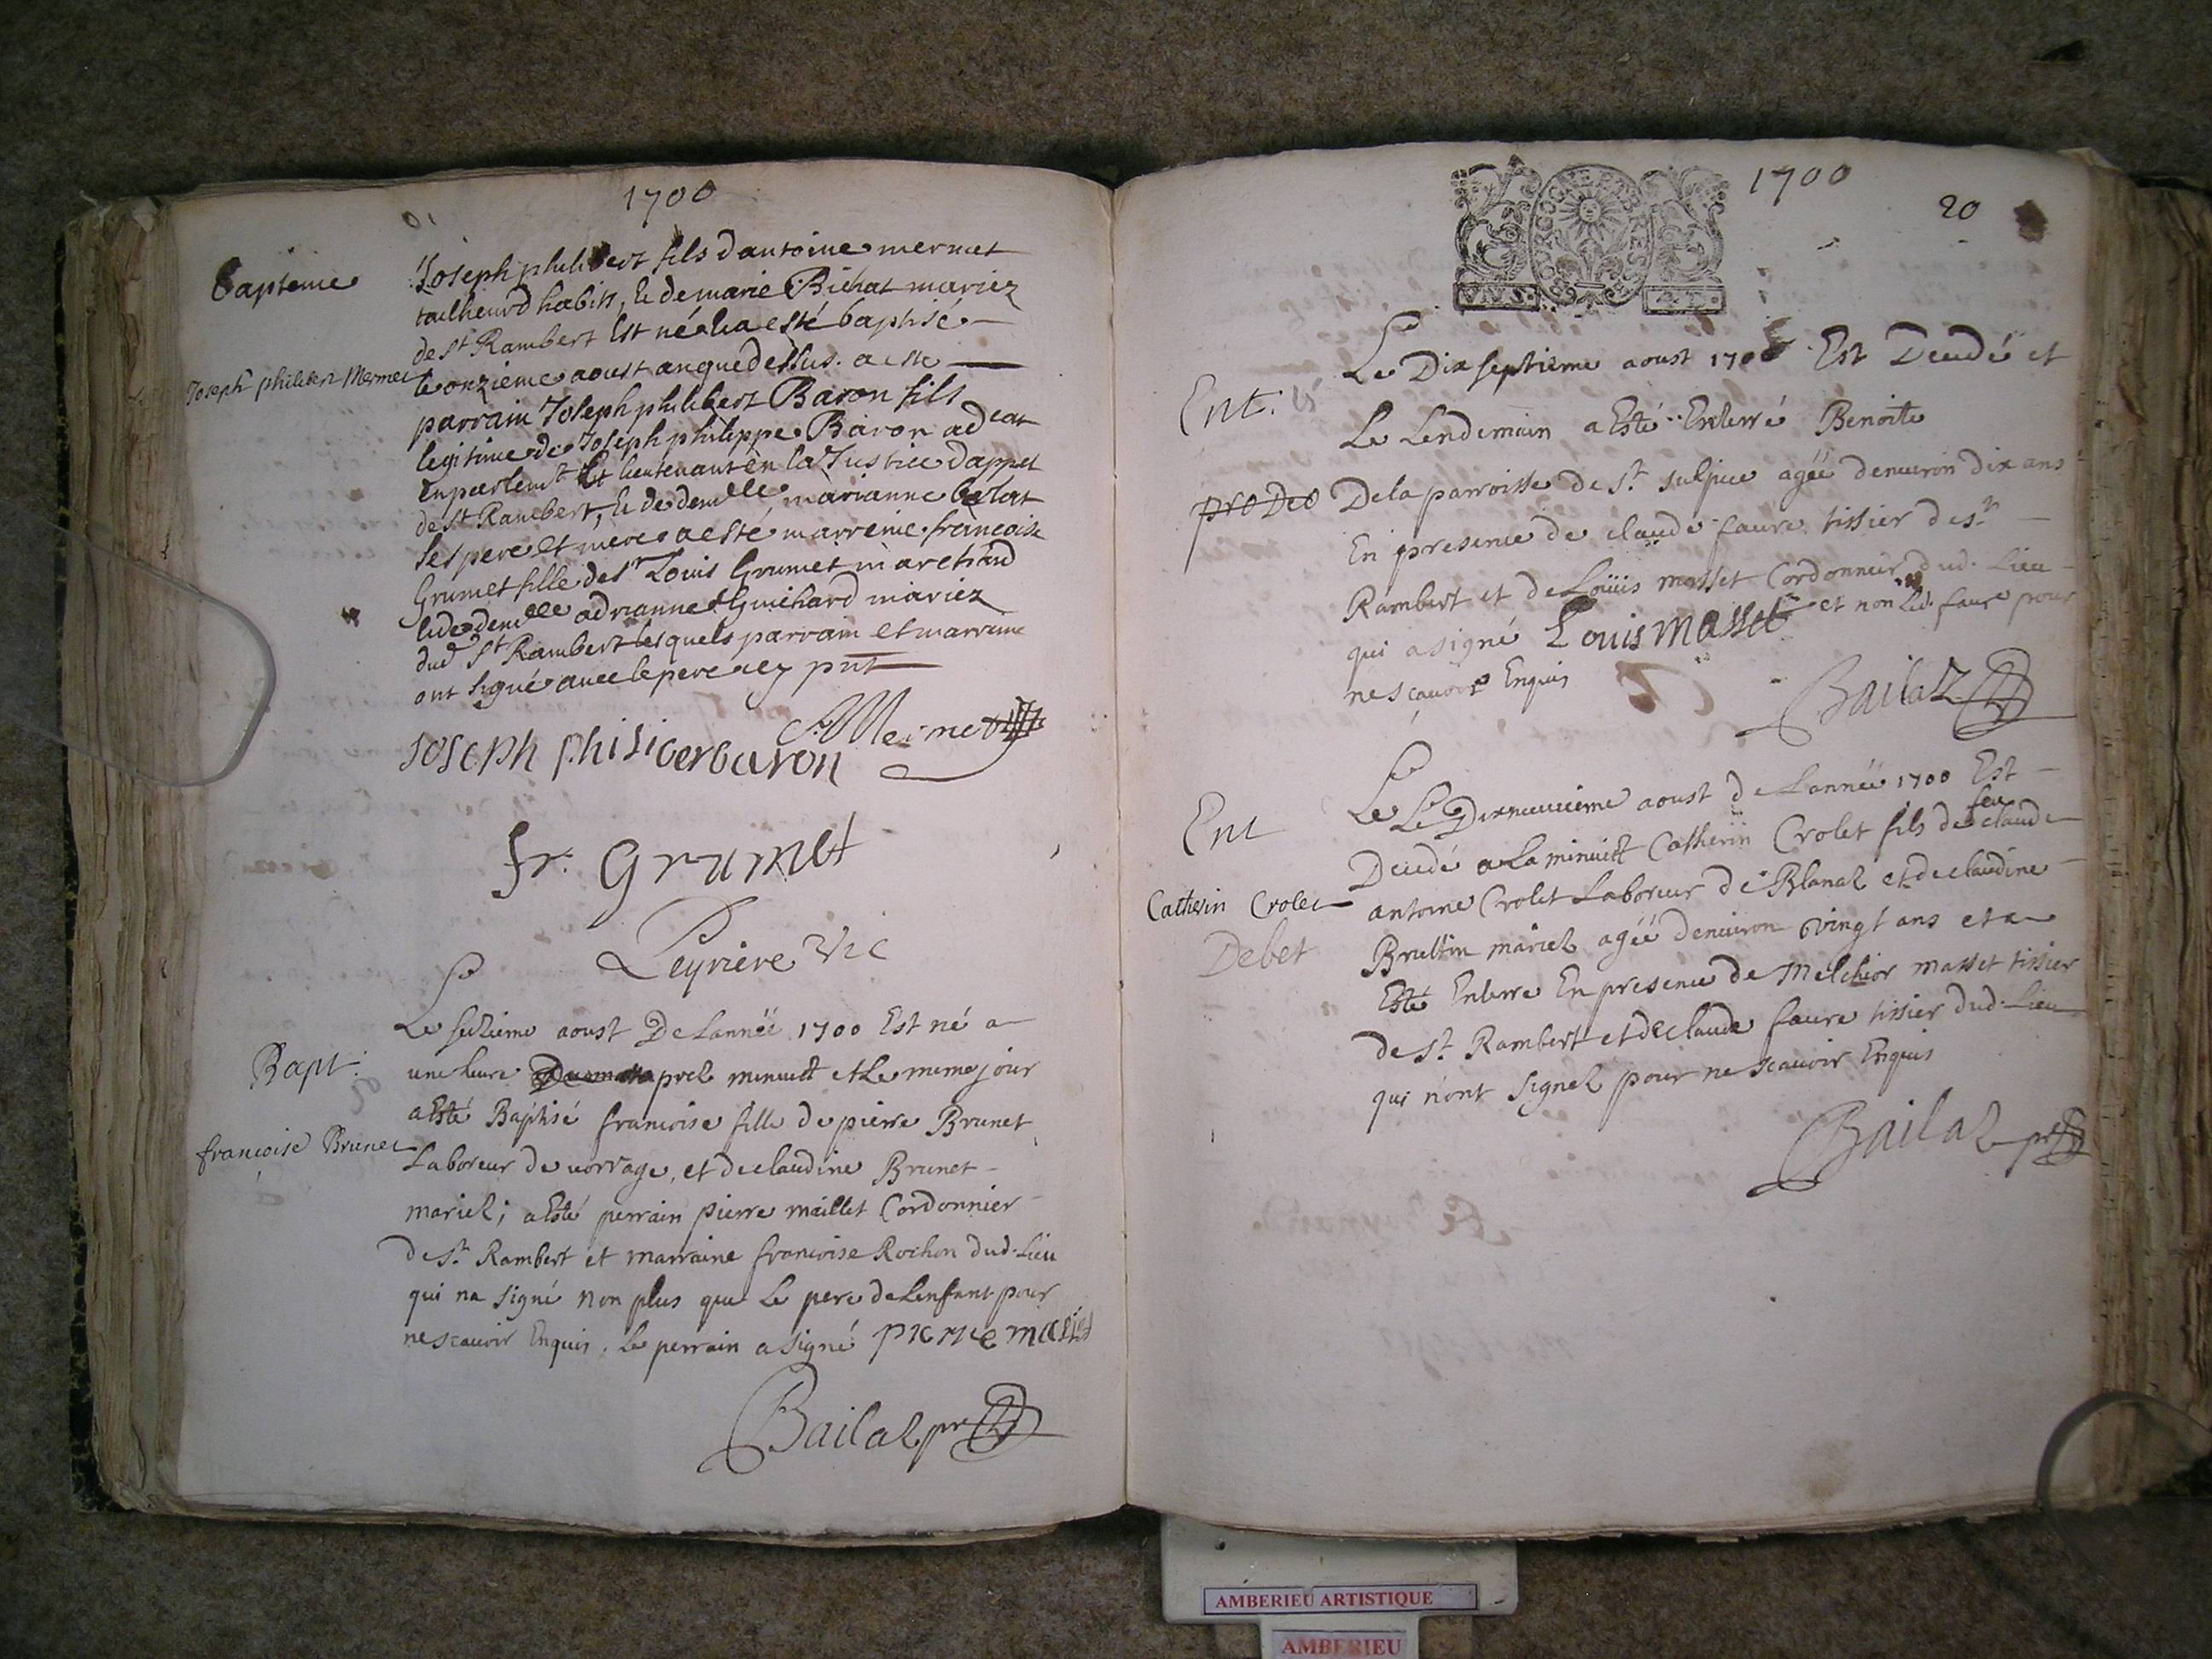 1700
Bapteme
Joseph philibert fils dantoine mermet
tailheur d habits, et de marie Bichat mariez
de St Rambert Est né et a esté baptisé
Joseph philibert Mermet
le onzieme aoust an que dessus. a esté
parrain Joseph philibert Baron fils
legitime de Joseph philippe Baron adcat
en parlemt Et lieutenant en la Justice dappel
de St Rambert, et de demlle marianne
ses pere et mere a esté marreine francoise
Grumet fille de sr Louis Grumet marchand
et de demlle adrianne Guichard mariez
dud St Rambert lesquels parrain et marreine
ont signé avec le pere
Mermet
Joseph philiber baron
fr. Grumet
Leyriere Vic
Le seizieme aoust De Lannéé 1700 Est né a
Bapt.
une heure aprez minuict et Le meme jour
a Esté Baptisé francoise fille de pierre Brunet
francoise Brunet
Laboreur de vorrage, et de claudine Brunet
mariez; a Esté perrain pierre maillet Cordonnier
de St. Rambert et marraine francoise Rochon dud. Lieu
qui na signé non plus que Le pere de Lenfant pour
ne scavoir Enquis. Le perrain a signé
Bailaz pre
1700
20
Le Dix septieme aoust 1700 Est Decedé et
Ent.
Le Lendemain a Esté Enterré Benoite
pro Deo
De la parroisse de St. sulpice agéé denviron dix ans
En presence de claude faure tissier de St.
Rambert et de Loüis masset Cordonnier dud. Lieu
qui a signé Louis Masset et non Led. faure pour
ne scavoir Enquis
Bailaz
Le Le Dixneuvieme aoust de Lannéé 1700 Est
Ent
Decedé a La minuict Catherin Crolet fils de feu claude
Catherin Crolet
antoine Crolet Laboreur de Blanaz et de claudine
Debet
mariez agéé denviron vingt ans et a
Esté Enterré En presence de Melchior masset tissier
de St. Rambert et de claude faure tissier dud. Lieu
qui nont signez pour ne scavoir Enquis
Bailaz pre
AMBERIEU ARTISTIQUE
AMBERIEU